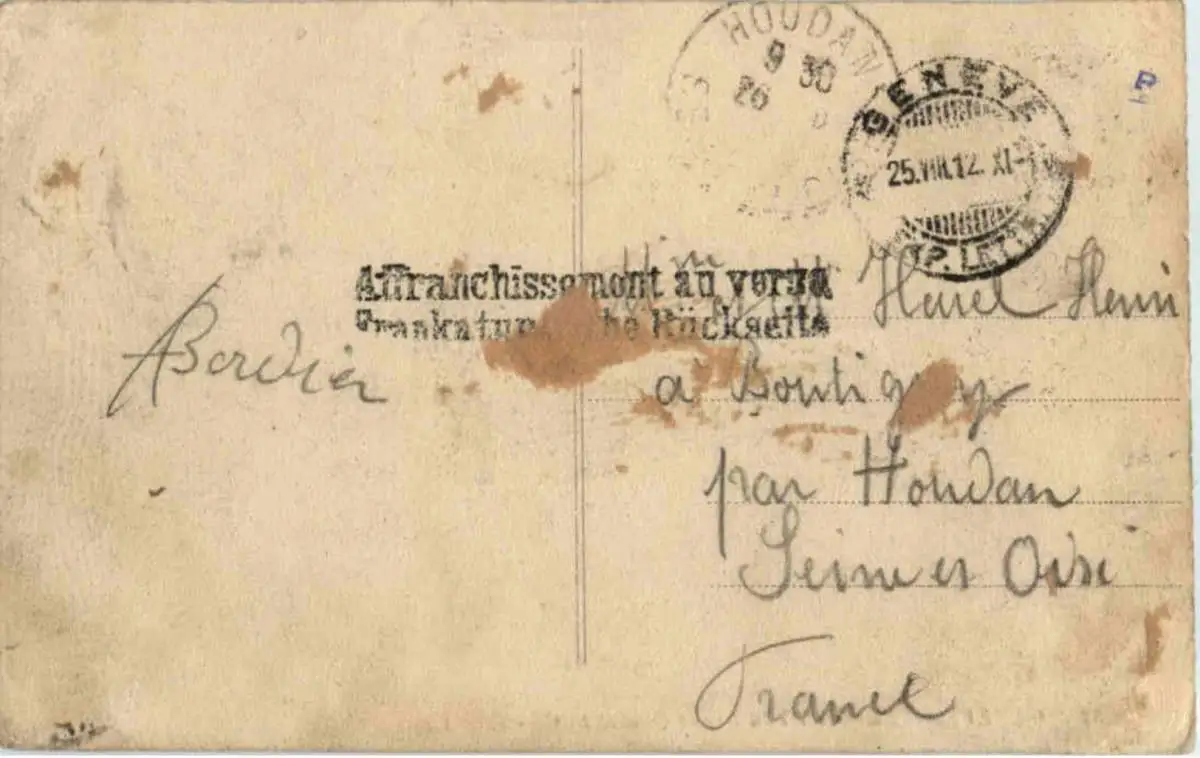 HOUDAN
9 30
26
GENÈVE
25.VIII.12. XI-
EXP. LETTR.
Affranchissement au verso
Frankatur Rückseite
Harel Henri
ABordier
à Boutigny
par Houdan
Seine et Oise
France